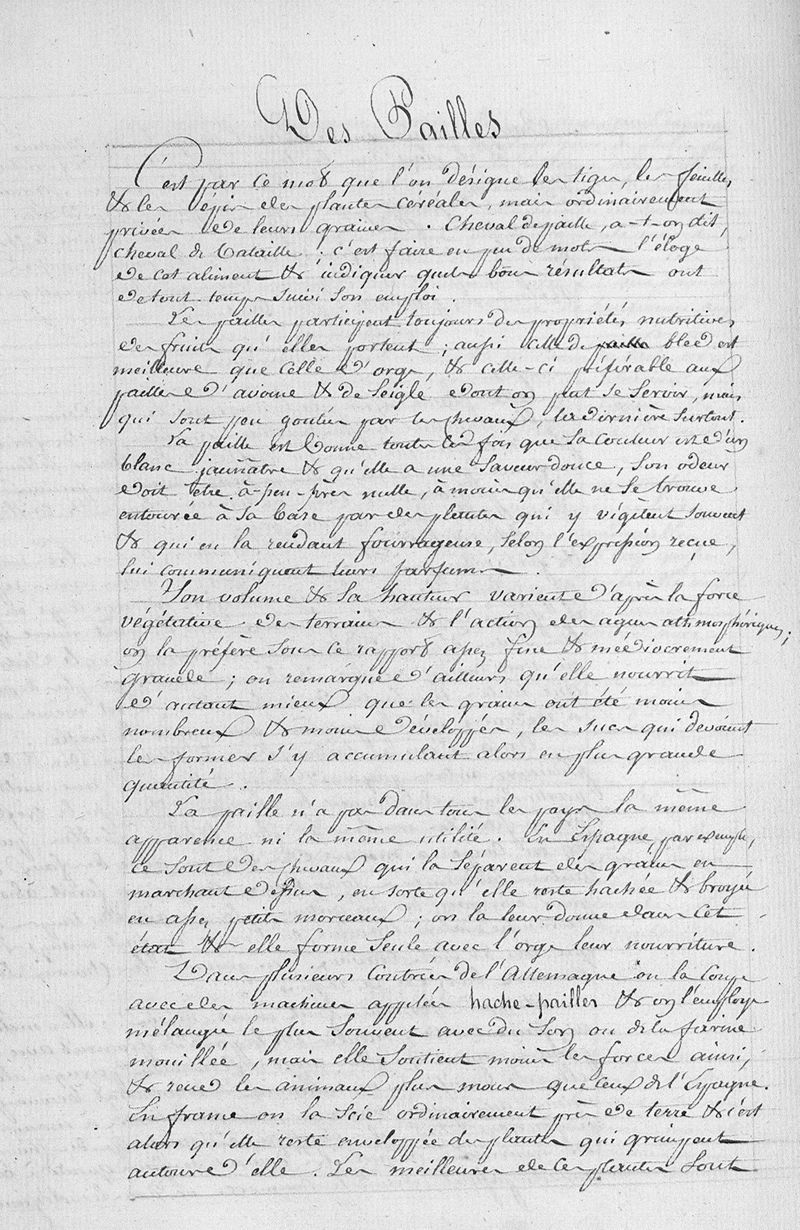 Des Pailles
C'est par ce mot que l'on désigne les tiges, les feuilles
& les épis des plantes céréales, mais ordinairement
privées de leurs graines. Cheval de paille, a-t-on dit,
cheval de bataille. c'est faire en peu de mots l'éloge
de cet aliment & indiquer quels bons résultats ont
de tout temps suivi son emploi.
Les pailles participent toujours des propriétés nutritives
des fruits qu'elles portent; aussi celle de paille bled est
meilleure que celle d'orge, & celle-ci préférable aux
pailles d'avoine & de Seigle dont on peut se servir, mais
qui sont peu goutées par les chevaux, la dernière surtout.
La paille est bonne toutes les fois que sa couleur est d'un
blanc jaunâtre & qu'elle a une saveur douce, son odeur
doit être à-peu-près nulle, à moins qu'elle ne se trouve
entourée à sa base par des plantes qui y végètent souvent
& qui en la rendant fourrageuse, selon l'expression reçue,
lui communiquent leurs parfums.
Son volume & sa hauteur varient d'après la force
végétative des terrains & l'action des agens athmosphériques;
on la préfère sous ce rapport assez fine & médiocrement
grande; on remarque d'ailleurs qu'elle nourrit
d'autant mieux que les grains ont été moins
nombreux & moins développés, les sucs qui devaient
les former s'y accumulant alors en plus grande
quantité.
La paille n'a pas dans tous les pays la même
apparence ni la même utilité. En Espagne, par exemple,
ce sont des chevaux qui la séparent des grains en
marchant dessus, en sorte qu'elle reste hachée & broyée
en assez petits morceaux; on la leur donne dans cet
état & elle forme seule avec l'orge leur nourriture.
Dans plusieurs Contrées de l'Allemagne on la coupe
avec des machines appelées hache-pailles & on l'employe
mélangée le plus souvent avec du son ou de la farine
mouillée, mais elle soutient moins les forces ainsi,
& rend les animaux plus mous que ceux de l'Espagne.
En france on la scie ordinairement près de terre & c'est
alors qu'elle reste enveloppée des plantes qui grimpent
autour d'elle. Les meilleures de ces plantes sont